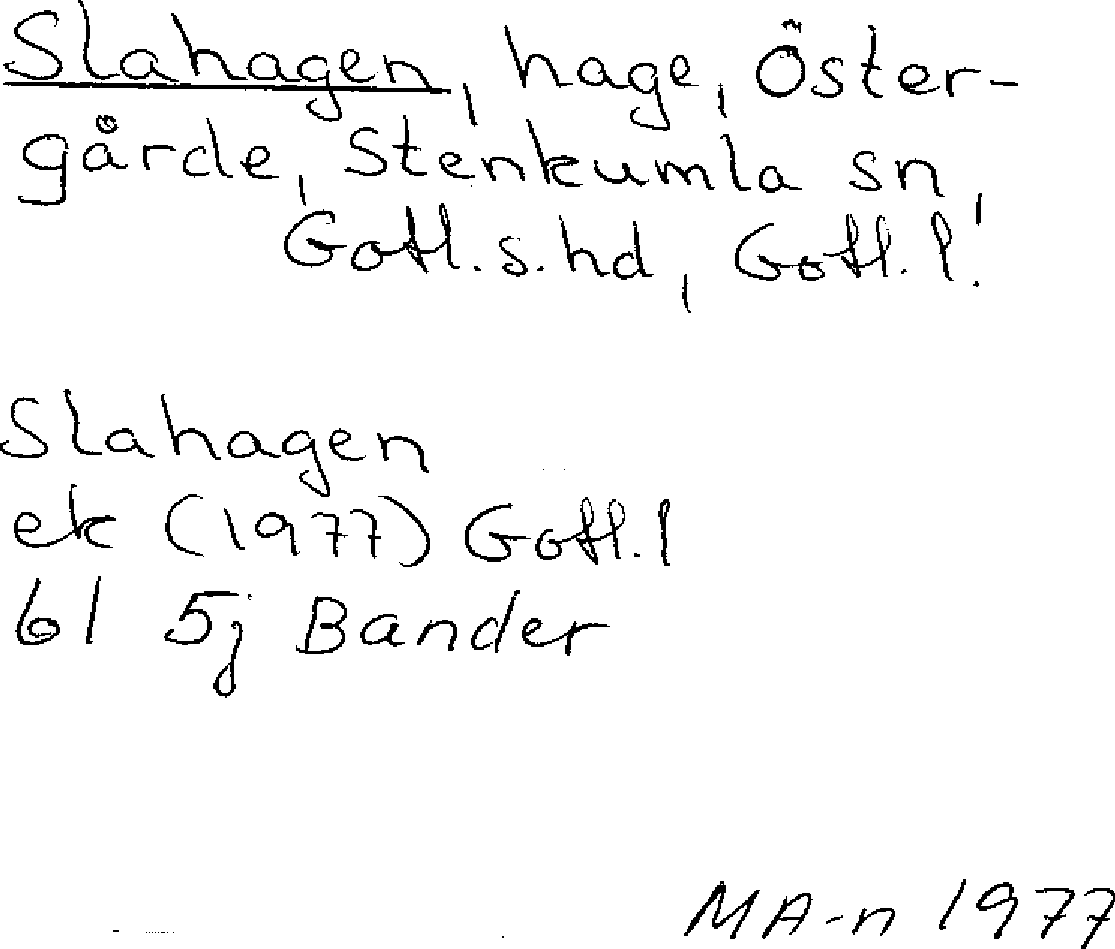 Slahagen, hage, Öster-
gårde, Stenkumla sn,
Gotl.s.hd, Gotl.l.
Slahagen
ek (1977) Gotl.l
61 5j Bander
MA-n 1977